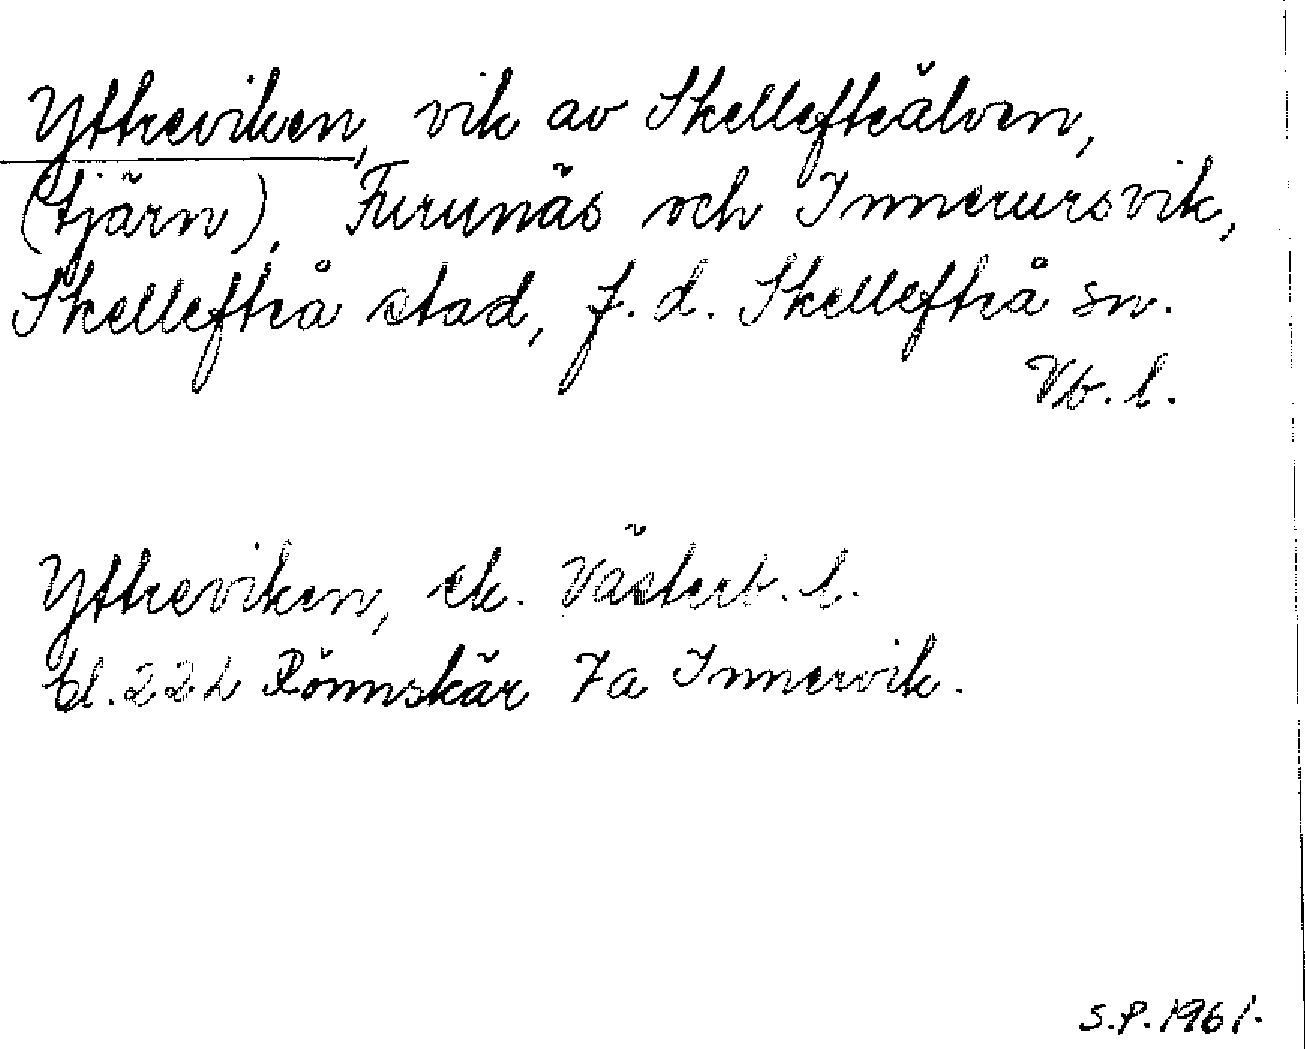 Yttreviken, vik av Skellefteälven,
(tjärn), Furunäs och Innerursvik,
Skellefteå stad, f. d. Skellefteå sn.
Vb. l.
Yttreviken, ek. Västerb. l.
bl. 22L Rönnskär 7a Innervik.
S.P. 1961.